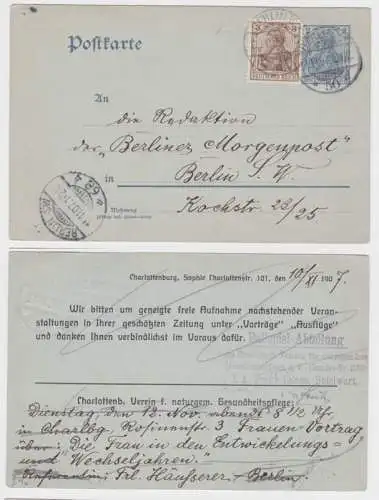 Postkarte
3
An
die Redaktion
der „Berliner Morgenpost"
in Berlin S. W.
Wohnung
Kochstr. 23/25
BERLIN SW
Charlottenburg, Sophie Charlottenstr. 101, den 10/XI 1907.
Wir bitten um geneigte freie Aufnahme nachstehender Veran-
staltungen in Ihrer geschätzten Zeitung unter „Vorträge" „Ausflüge"
und danken Ihnen verbindlichst im Voraus dafür.
Charlottenb. Verein f. naturgem. Gesundheitspflege:
Dienstag, den 12. Nov. abends 8 1/2 Uhr,
in Charlbg Rosinenstr. 3 Frauen-Vortrag
über: „Die Frau in den Entwickelungs-
und Wechseljahren."
Referentin: Frl. Häusserer - Berlin.